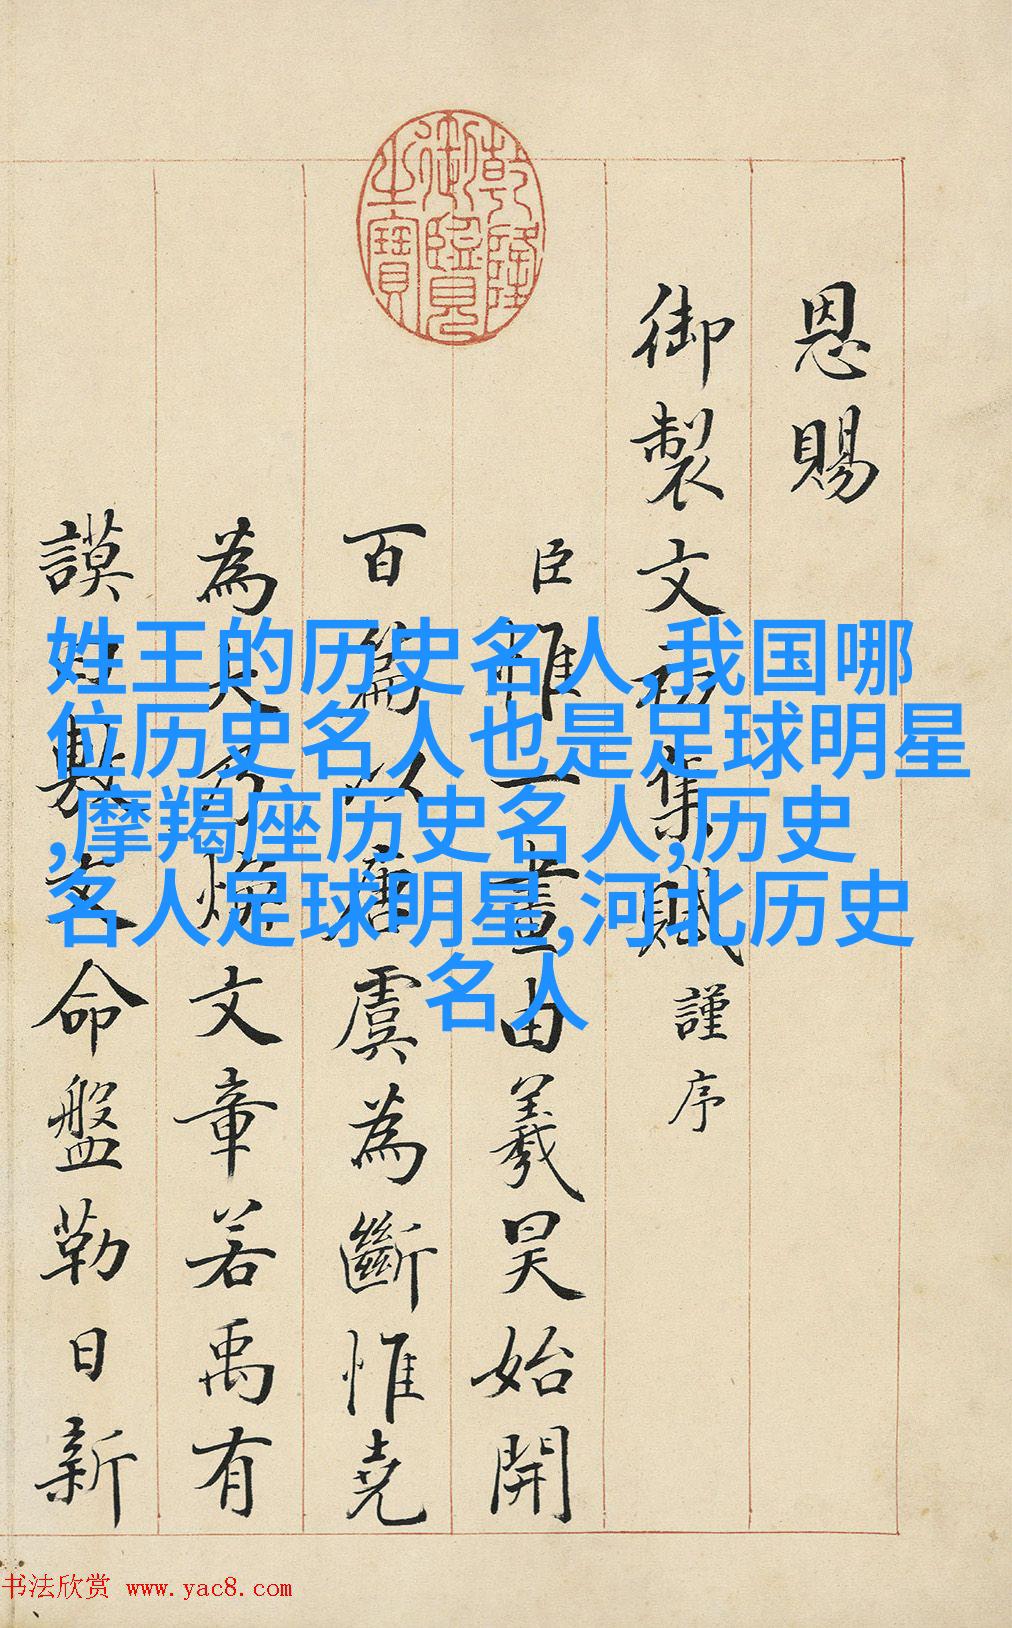 乾隆御覽之寶
恩賜
御製文初集賦謹序
臣惟一畫由羲昊始開
百篇以唐虞為斷惟堯
為大乃煥文章若禹有
謨曰敷文命盤勒日新
姓王的历史名人,我国哪
位历史名人也是足球明星
,摩羯座历史名人,历史
名人足球明星,河北历史
名人
书法欣赏 www.yac8.com